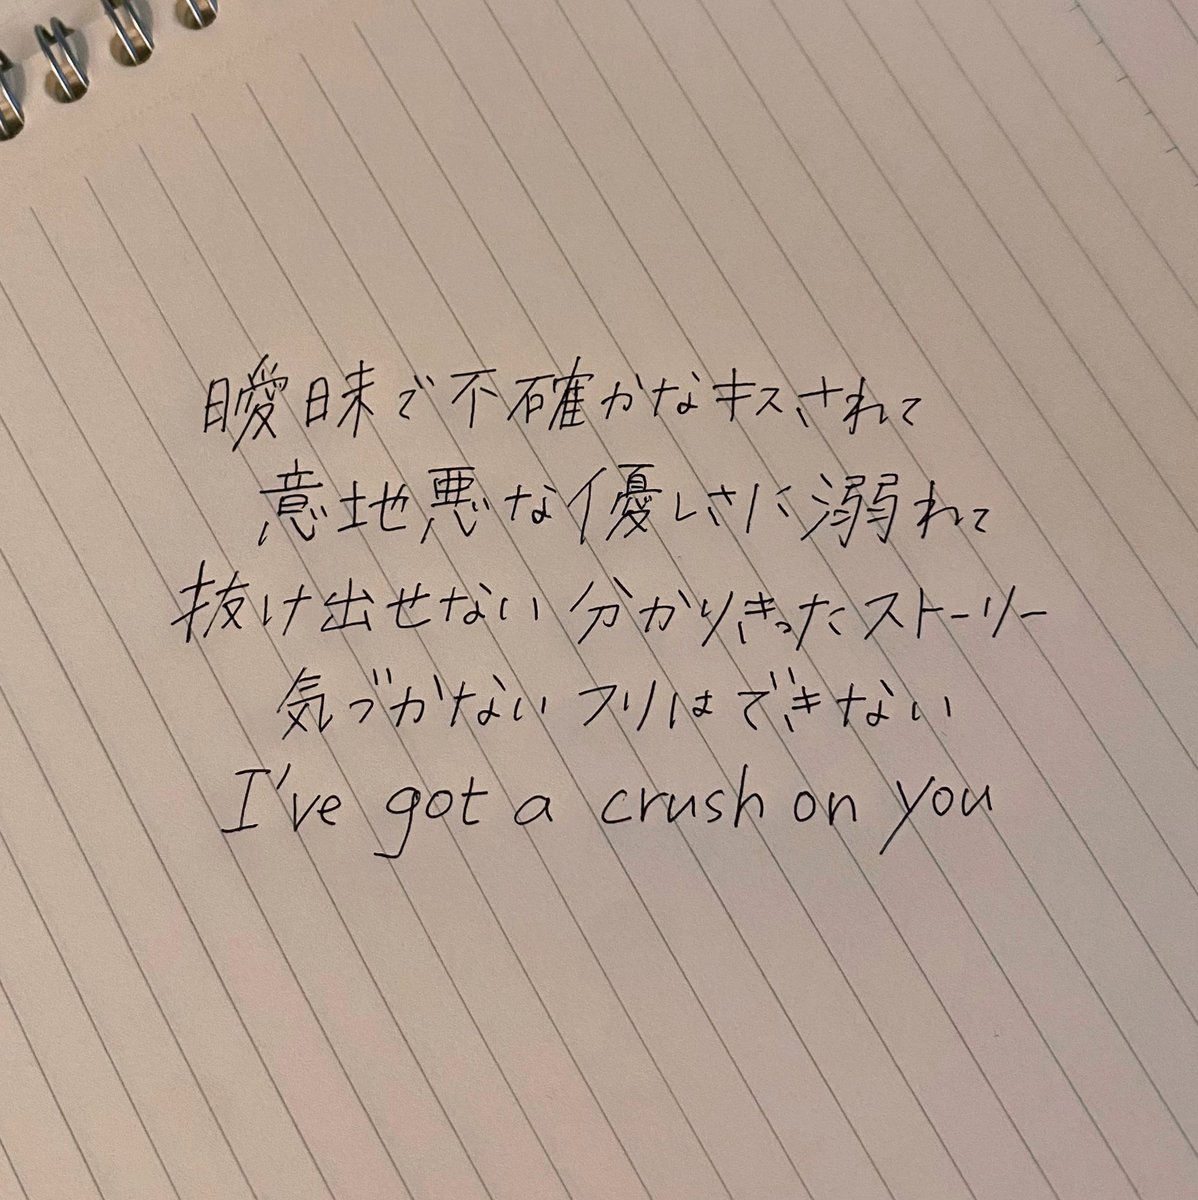 曖昧で不確かなキスされて
意地悪な優しさに溺れて
抜け出せない 分かりきったストーリー
気づかないフリはできない
I've got a crush on you